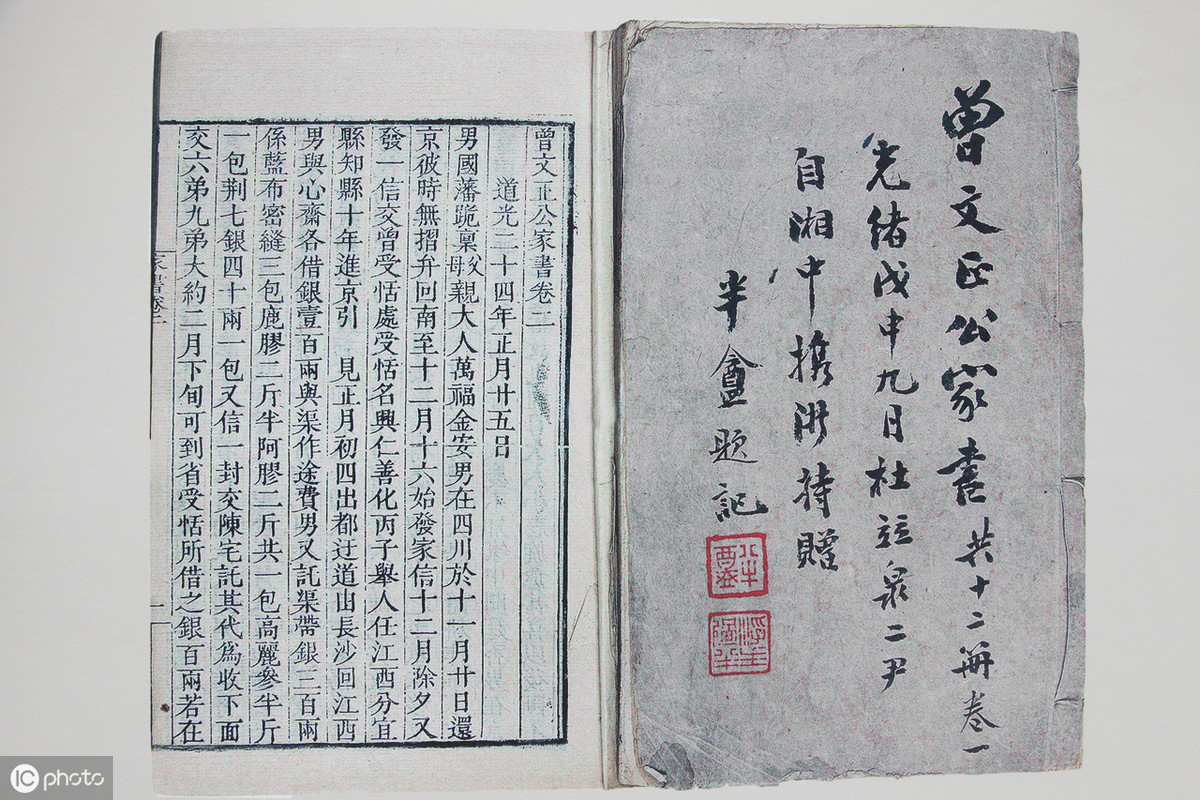 曾文正公家書 共十二冊 卷一
光緒戊申九月杜竝泉二尹
自湘中攜 持贈
半盦題記
曾文正公家書卷二
道光二十四年正月廿五日
男國藩跪稟父母親大人萬福金安男在四川於十一月廿日還
京彼時無摺弁回南至十二月十六始發家信十二月除夕又
發一信交曾受恬處受恬名興仁善化丙子舉人任江西分宜
縣知縣十年進京引 見正月初四出都迂道由長沙回江西
男與心齋各借銀壹百兩與渠作途費男又託渠帶銀三百兩
係藍布密縫三包鹿膠二斤半阿膠二斤共一包高麗參半斤
一包荆七銀四十兩一包又信一封交陳宅託其代為收下面
交六弟九弟大約二月下旬可到省受恬所借之銀百兩若在
家書卷二
一
IC photo